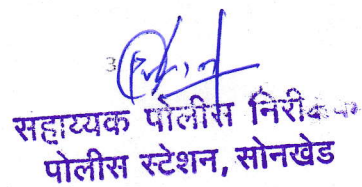 3
सहाय्यक पोलीस निरीक्षक
पोलीस स्टेशन, सोनखेड